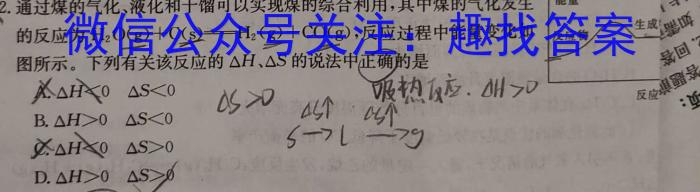 2. 通过煤的气化、液化和干馏可以实现煤的综合利用,其中煤的气化发生
的反应为H₂O(g)+C(s) H₂(g)+CO(g),反应过程中能量变化如
图所示。下列有关该反应的 ΔH、ΔS 的说法中正确的是
微信公众号关注：趣找答案
能量
生成
反应
A. ΔH<0 ΔS<0
B. ΔH>0 ΔS<0
C. ΔH<0 ΔS>0
D. ΔH>0 ΔS>0
ΔS>0
吸热反应. ΔH>0
ΔS↑ ΔS↑
s→l→g